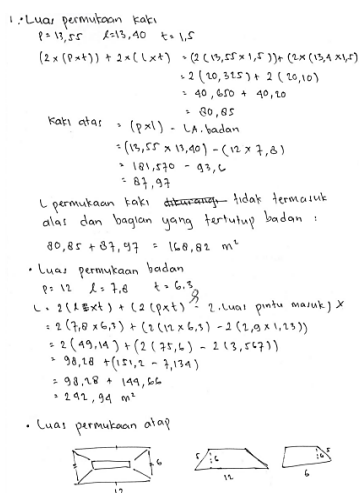 1. • Luas permukaan kaki
p = 13,55 l = 13,40 t = 1,5
(2 x (p x t)) + 2 x (l x t) = (2 (13,55 x 1,5)) + (2 x (13,4 x 1,5)
= 2 (20,325) + 2 (20,10)
= 40,650 + 40,20
= 80,85
Kaki atas = (p x l) - LA. badan
= (13,55 x 13,40) - (12 x 7,8)
= 181,570 - 93,6
= 87,97
L permukaan kaki tidak termasuk
alas dan bagian yang tertutup badan :
80,85 + 87,97 = 168,82 m²
• Luas permukaan badan
p = 12 l = 7,8 t = 6,3
L = 2 (l x t) + (2 (p x t) - 2. Luas pintu masuk)
= 2 (7,8 x 6,3) + (2 (12 x 6,3) - 2 (2,9 x 1,23))
= 2 (49,14) + (2 (75,6) - 2 (3,567))
= 98,28 + (151,2 - 7,134)
= 98,28 + 144,66
= 242,94 m²
• Luas permukaan atap
6 5 6 5 6
12 12 6